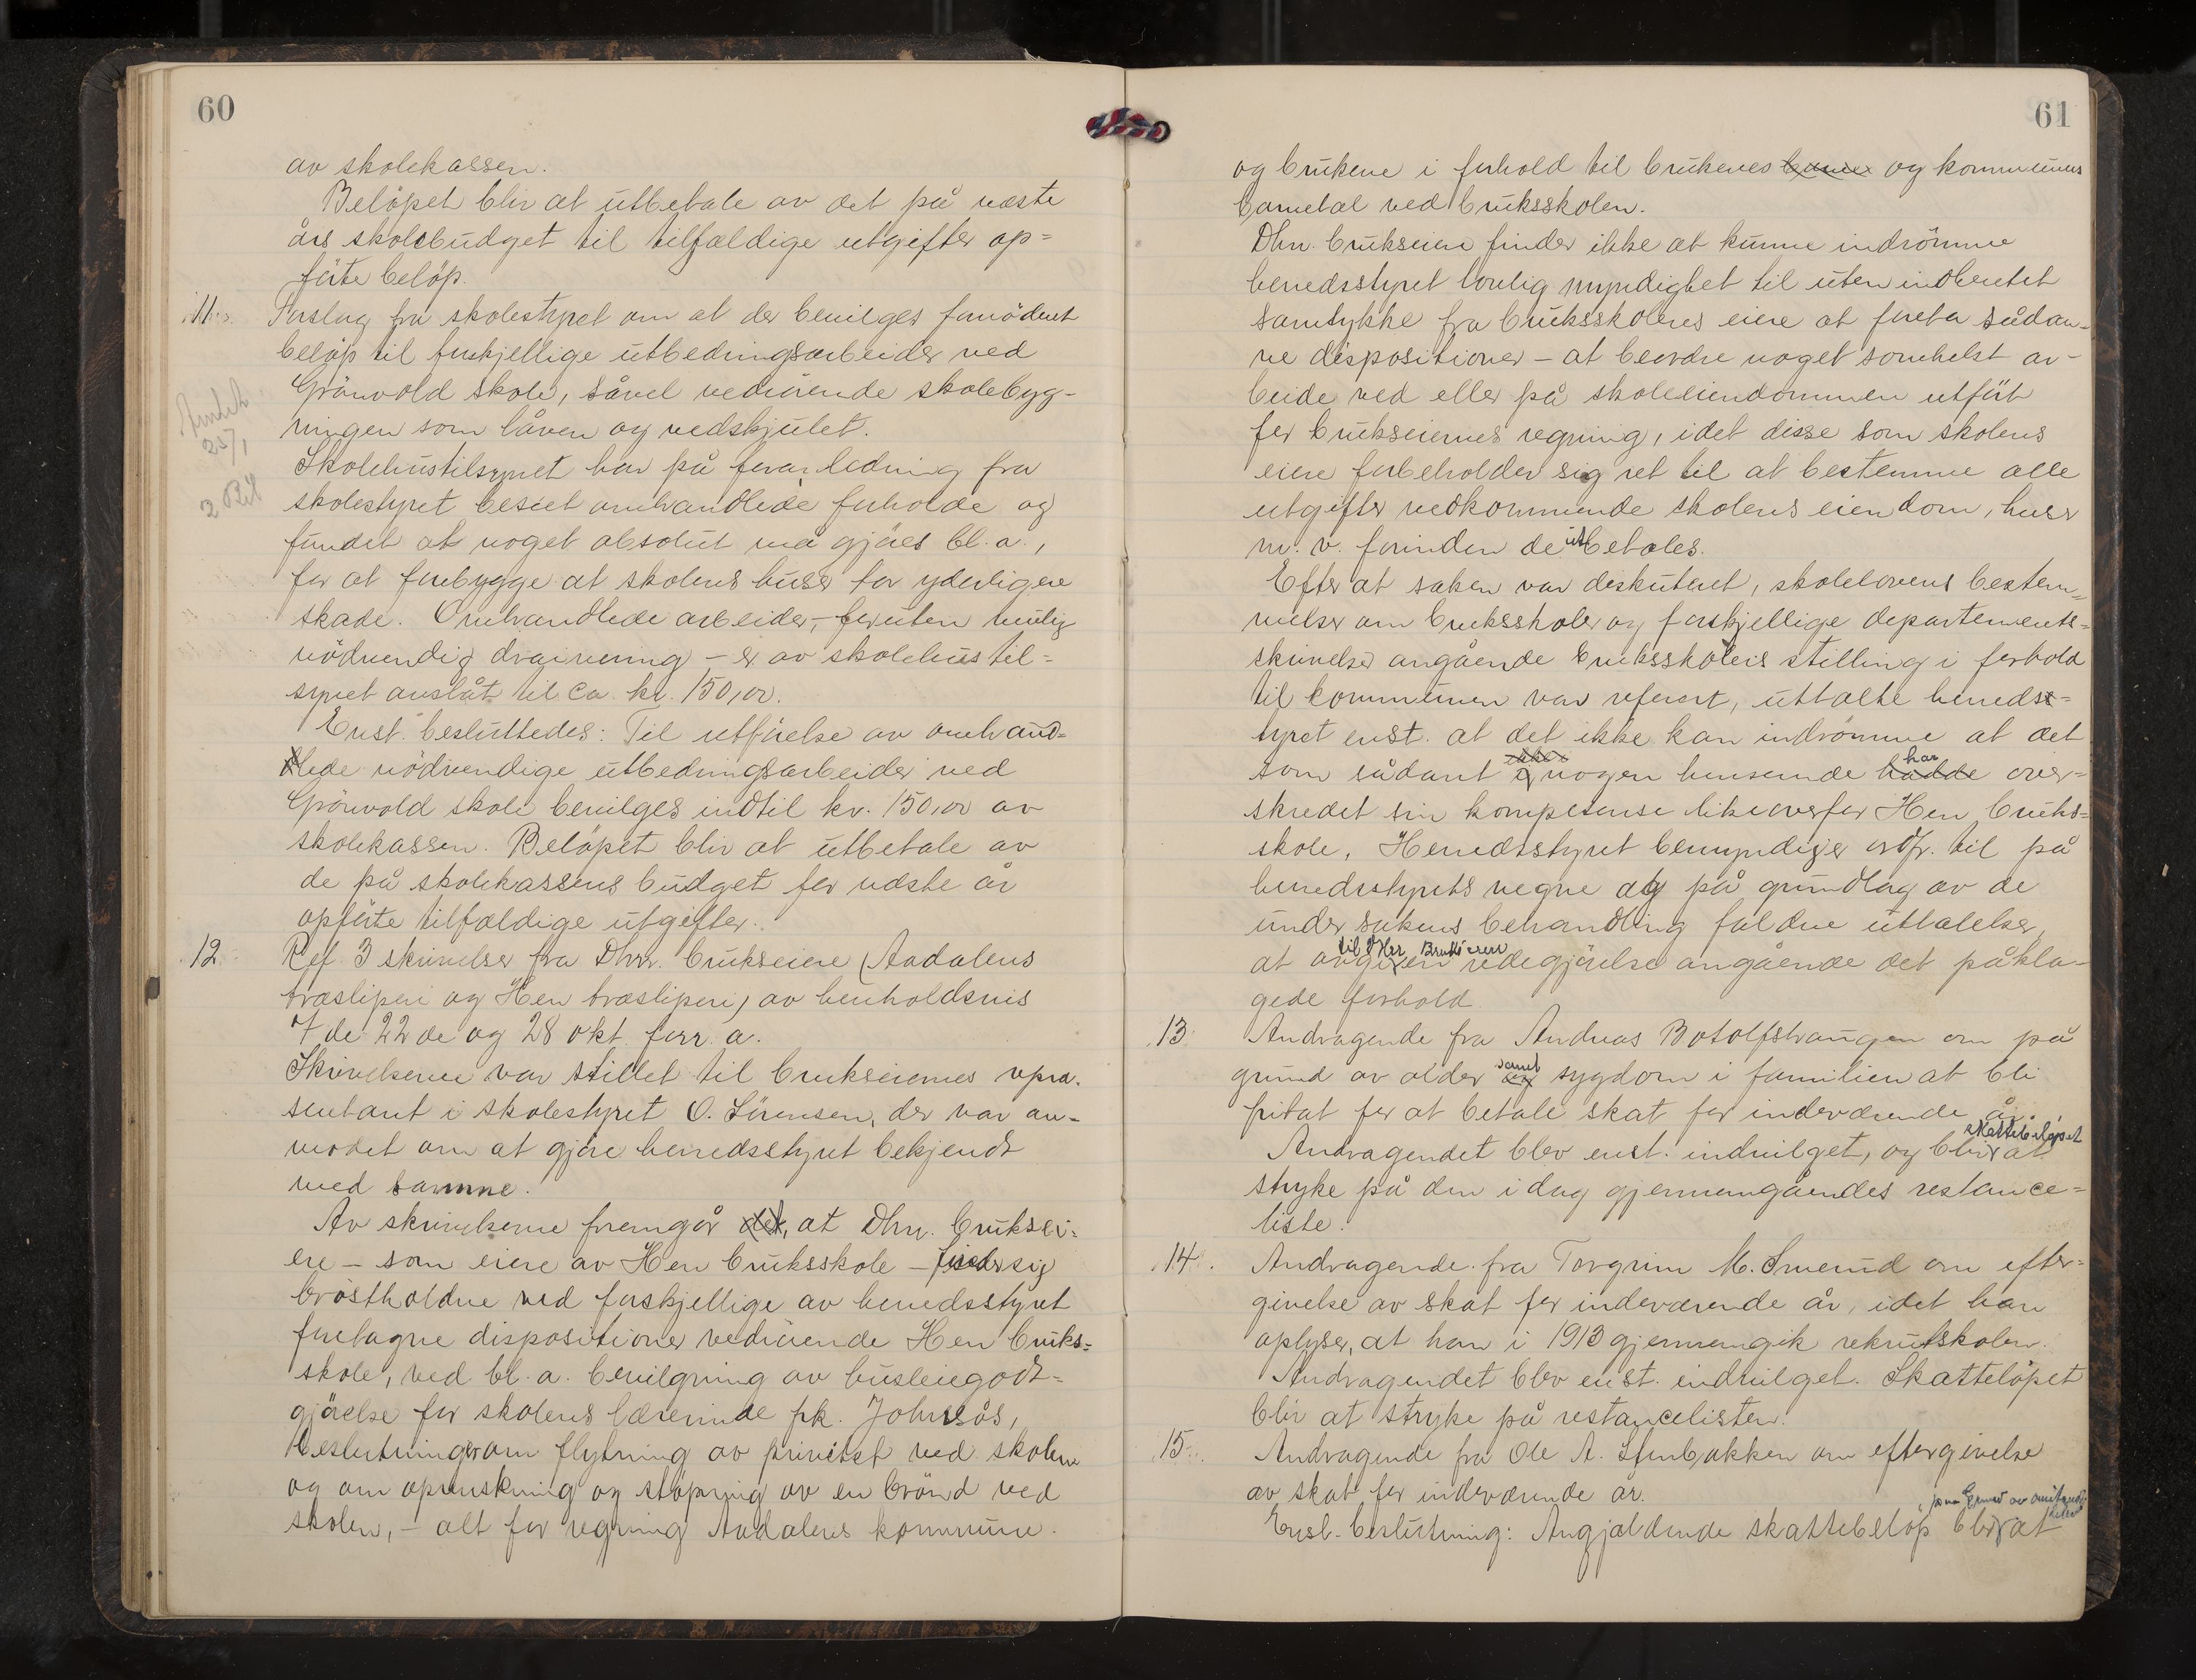 60
av skolekassen.
Beløpet blir at utbetale av det på næste
års skolebudget til tilfældige utgifter op=
førte beløp.
11. Forslag fra skolestyret om at der bevilges fornødent
beløp til forskjellige utbedringsarbeider ved
Grönvold skole, såvel vedrörende skolebyg-
ningen som låven og vedskjulet.
25/1
2
Skolehustilsynet har på foranledning fra
skolestyret beseet omhandlede forholde og
fundet at noget absolut må gjöres bl. a.,
for at forebygge at skolens huser tar yderligere
skade. Omhandlede arbeider, – foruten mulig
nödvendig drainering – er av skolehustil=
synet anslåt til ca kr. 150,00.
Enst. besluttedes: Til utförelse av omhand=
lede nödvendige utbedringsarbeider ved
Grönvold skole bevilges indtil kr. 150,00 av
skolekassen. Belöpet blir at utbetale av
de på skolekassens budget for næste år
opförte tilfældige utgifter.
12. Ref. 3 skrivelser fra Dhrr. brukseiere (Aadalens
træsliperi og Hen træsliperi) av henholdsvis
7de 22de og 28 okt. forr. a.
Skrivelserne var stillet til brukseiernes repræ.
sentant i skolestyret O. Sörensen, der var an=
modet om at gjöre herredsstyret bekjendt
med samme.
Av skrivelserne fremgår det, at Dhrr. bruksei=
ere – som eiere av Hen bruksskole – finder sig
bröstholdne ved forskjellige av herredsstyret
foretagne dispositioner vedrörende Hen bruks=
skole, ved bl. a. bevilgning av husleiegodt=
gjörelse for skolens lærerinde frk. Johnsås,
beslutninger om flytning av privetet ved skolen
og om oprenskning og støpning av en brönd ved
skolen, – alt for regning Aadalens kommune.
61
og brukene i forhold til brukenes barne og kommunens
barnetal ved bruksskolen.
Dhrr. brukseiere finder ikke at kunne indrömme
herredsstyret lovlig myndighet til uten indhentet
samtykke fra bruksskolens eiere at foreta sådan=
ne dispositioner – at beordre noget somhelst ar-
beide ved eller på skoleeiendommen utfört
for brukseiernes regning, idet disse som skolens
eiere forbeholder sig ret til at bestemme alle
utgifter vedkommende skolens eiendom, huser
m. v. forinden de utbetales.
Efter at saken var diskuteret, skolelovens bestem=
melser om bruksskoler og forskjellige departements=
skrivelser angående bruksskolens stilling i forhold
til kommunen var referert, uttalte herreds=
tyret enst. at det ikke kan indrömme at det
som sådant ikke i nogen henseende hadde har over=
skredet sin kompetense likeoverfor Hen bruks=
skole. Herredsstyret bemyndiger ordf. til på
herredsstyrets vegne og på grundlag av de
under sakens behandling faldne uttalelser,
at avgi til Hrr. Brukseiere en redegjörelse angående det påkla=
gede forhold.
13. Andragende fra Andreas Botolfshaugen om på
grund av alder og samt sygdom i familien at bli
fritat for at betale skat for indeværende år.
Andragendet blev enst. indvilget, og blir skattebelöpet at
stryke på den idag gjennemgåendes restance=
liste.
14. Andragende fra Torgrim M. Smerud om efter=
givelse av skat for indeværende år, idet han
oplyser, at han i 1913 gjennemgik rekrutskolen.
Andragendet blev enst. indvilget. Skattelöpet
blir at stryke på restancelisten.
15. Andragende fra Ole A. Stenbakken om eftergivelse
av skat for indeværende år.
Enst. beslutning: Angjældende skattebelöp blir at